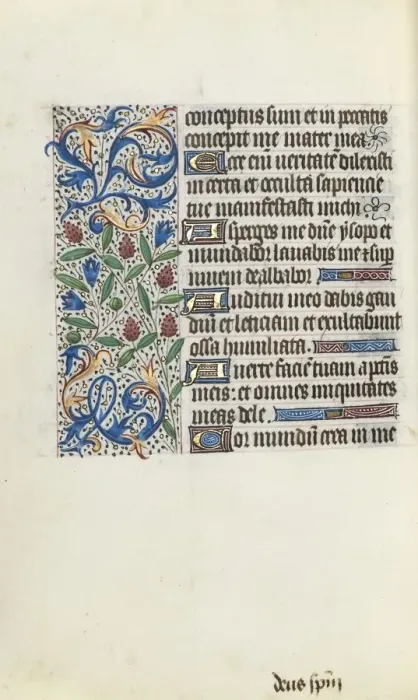 conceptus sum et in peccatis
concepit me mater mea
Ecce em̄ ueritatē dilexisti
incerta et occulta sapiencie
tue manifestasti michi
Asperges me dn̄e ysopo et
mundabor lauabis me et sup
niuem dealbabor
Auditui meo dabis gau
diū et leticiam et exultabunt
ossa humiliata
Auerte faciē tuam a pctīs
meis : et omnes iniquitates
meas dele
Cor mundū crea in me
deus spm̄